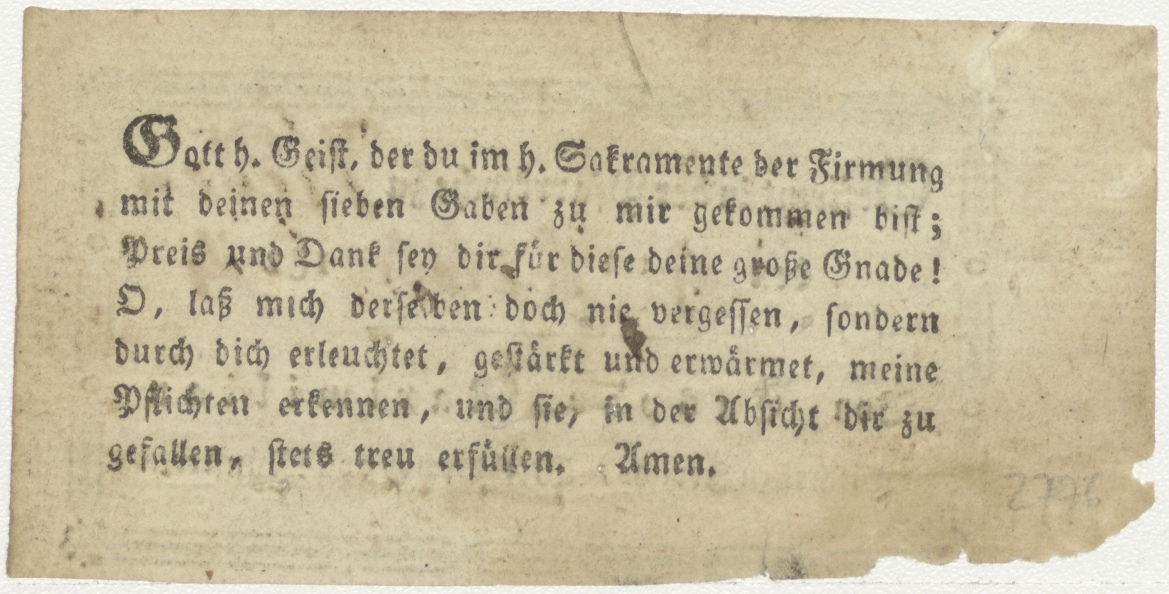 Gott h. Geist, der du im h. Sakramente der Firmung
mit deinen sieben Gaben zu mir gekommen bist;
Preis und Dank sey dir für diese deine große Gnade!
O, laß mich derselben doch nie vergessen, sondern
durch dich erleuchtet, gestärkt und erwärmet, meine
Pflichten erkennen, und sie, in der Absicht dir zu
gefallen, stets treu erfüllen. Amen.
2776